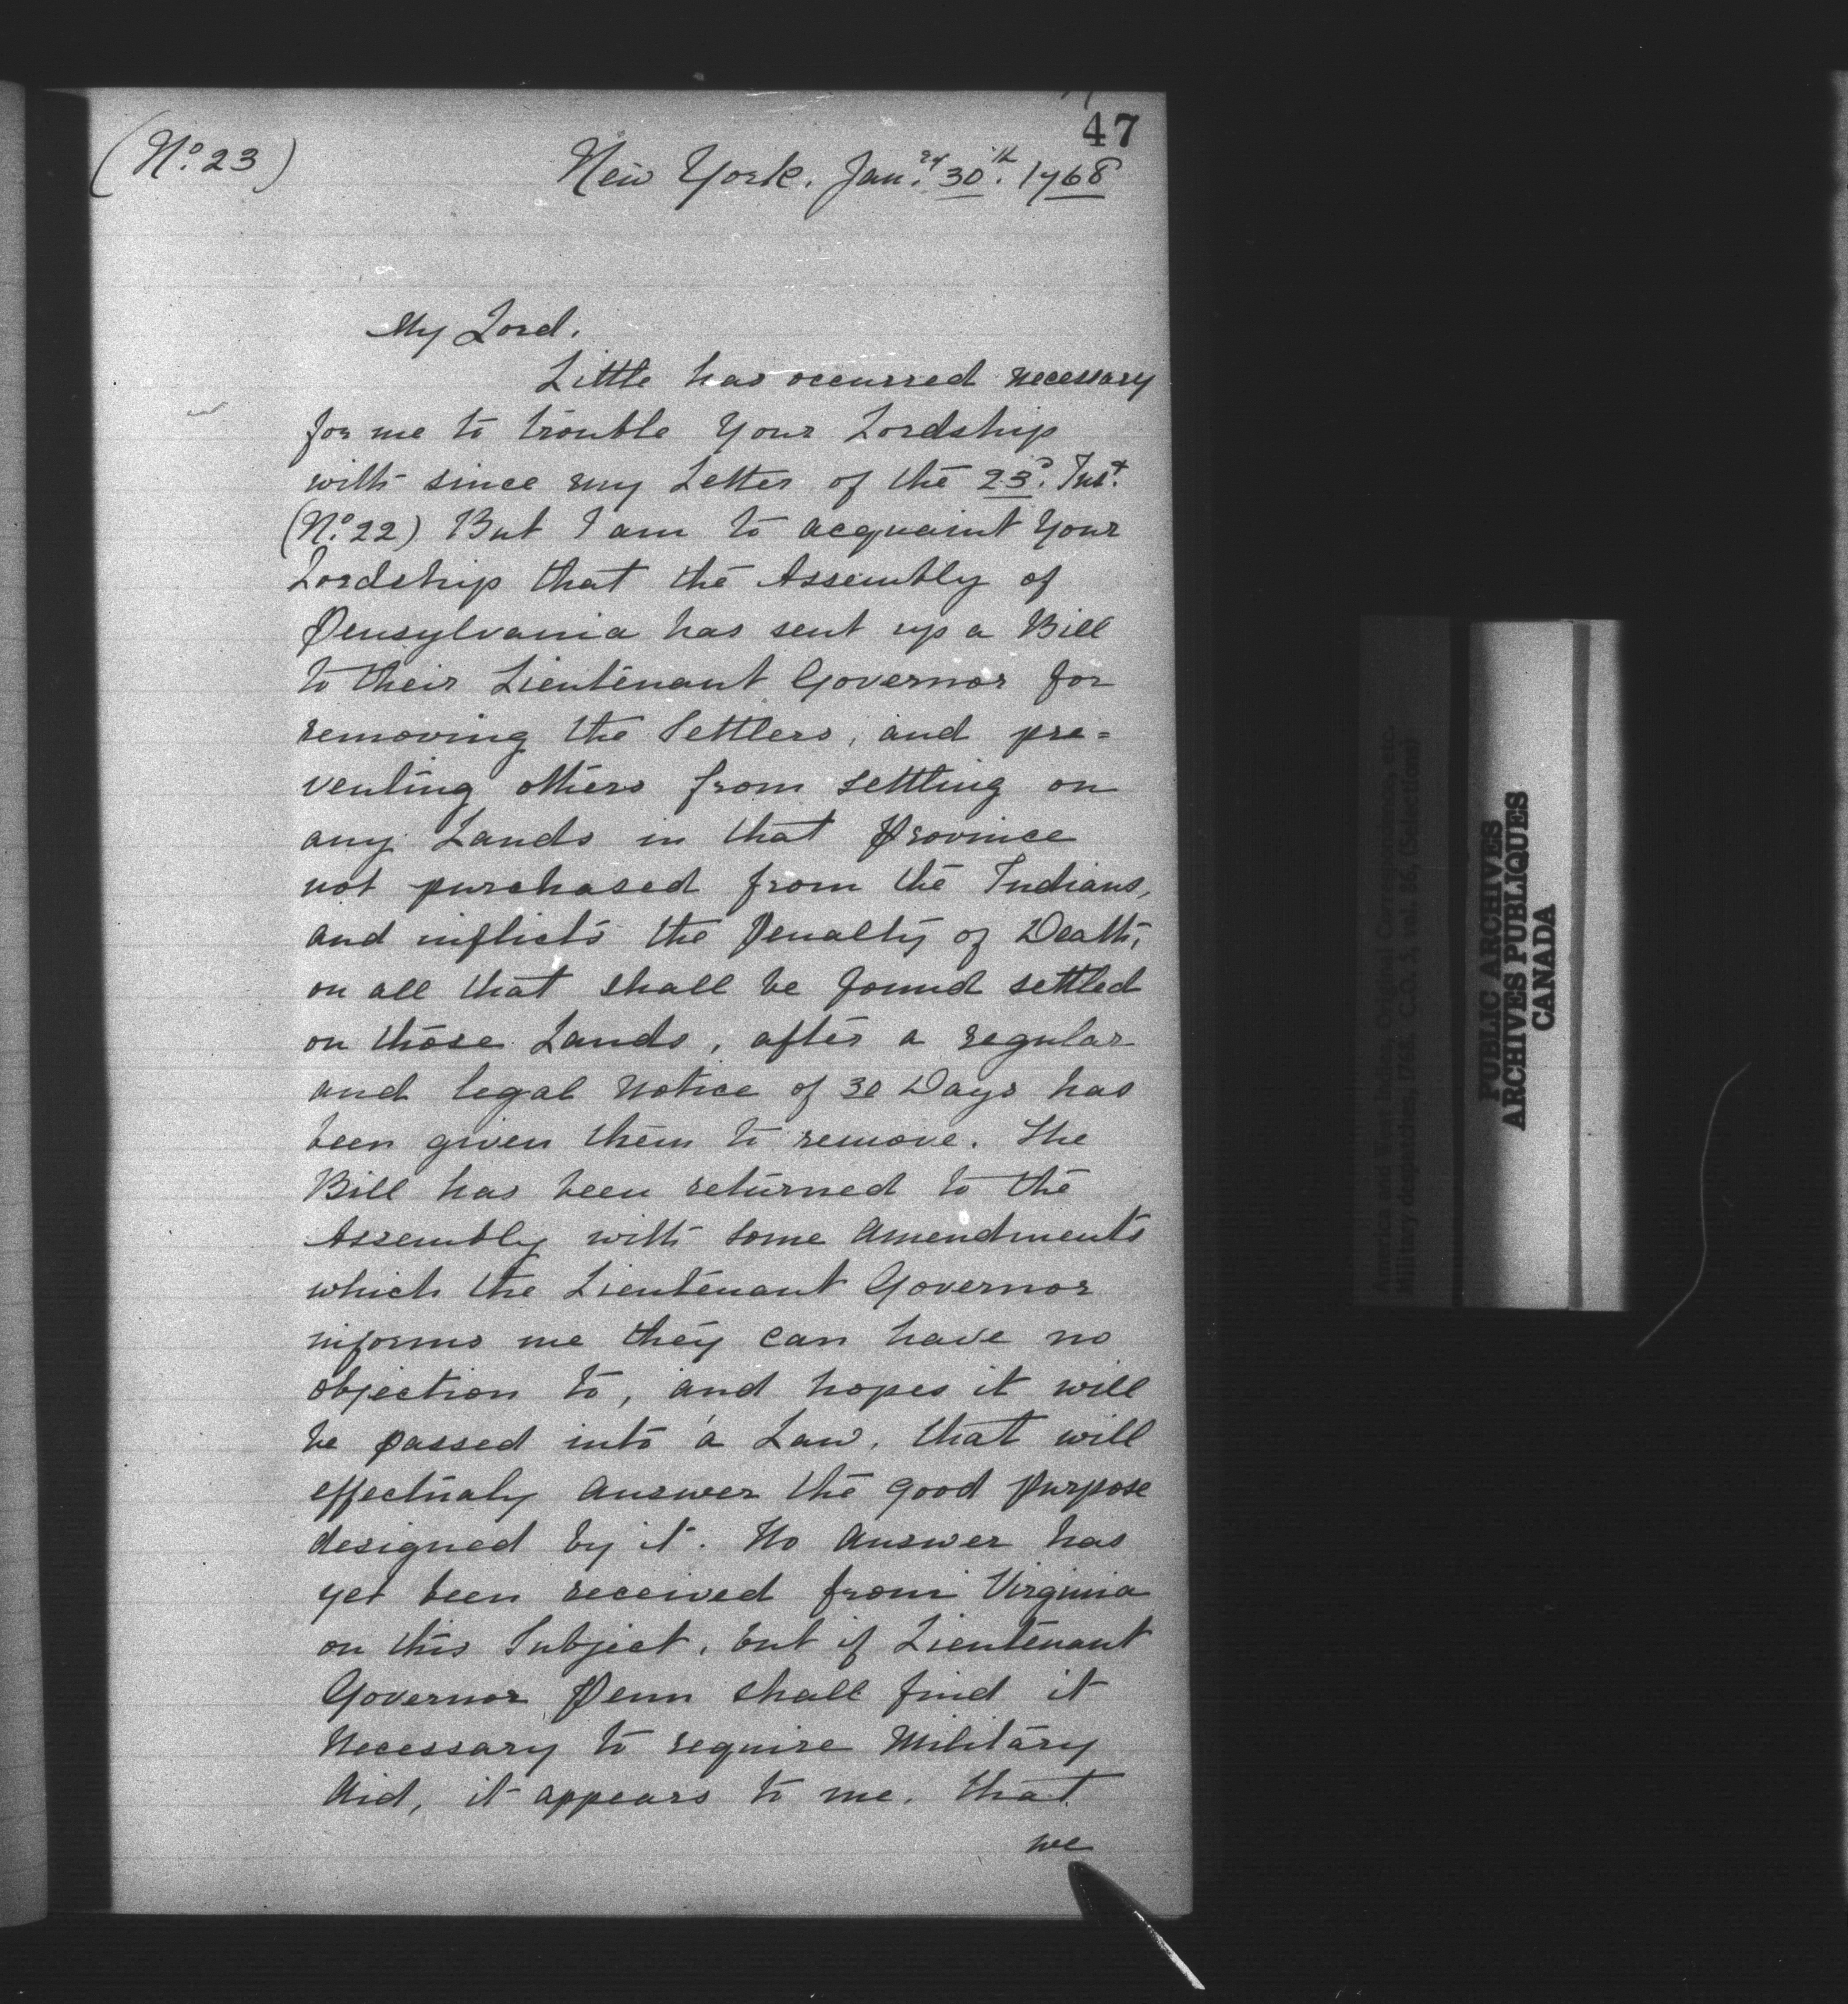 47
(No. 23) New York. Jany. 30th. 1768
My Lord.
Little has occurred necessary
for me to trouble Your Lordship
with since my Letter of the 23d. Inst.
(No. 22) But I am to acquaint Your
Lordship that the Assembly of
Pensylvania has sent up a Bill
to their Lieutenant Governor for
removing the Settlers, and pre=
venting others from settling on
any Lands in that Province
not purchased from the Indians,
and inflicts the Penalty of Death,
on all that shall be found settled
on those Lands, after a regular
and legal Notice of 30 Days has
been given them to remove. The
Bill has been returned to the
Assembly with some Amendments
which the Lieutenant Governor
informs me they can have no
objection to, and hopes it will
be passed into a Law, that will
effectualy answer the good Purpose
designed by it. No Answer has
yet been received from Virginia
on this Subject, but if Lieutenant
Governor Penn shall find it
Necessary to require Military
Aid, it appears to me, that
we
America and West Indies, Original Correspondence, etc.
Military despatches, 1768. C.O. 5, vol. 86, (Selection)
PUBLIC ARCHIVES
ARCHIVES PUBLIQUES
CANADA